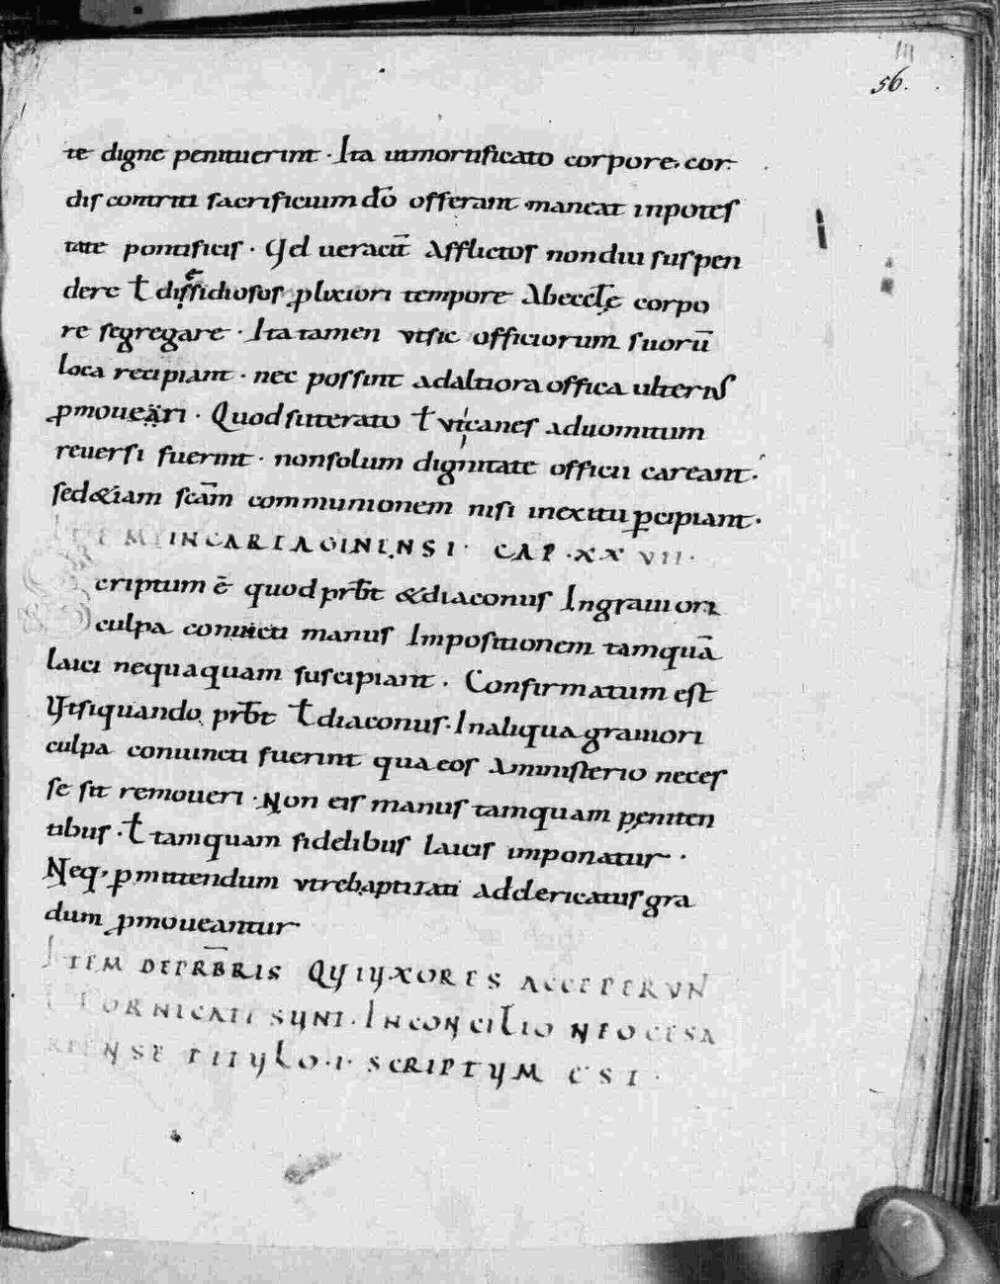 56.
te digne penituerint · Ita inmortificato corpore, cor
dis contriti sacrificium dō offerant maneat inpotes
tate pontificis · Vel ueracit̄ Afflictos nondiu suspen
dere ƚ dissidiosos, plixiori tempore Abeccƚę corpo
re segregare · Ita tamen vtsic officiorum suorū
loca recipiant · nec possint adaltiora offica ulterius
ꝓmoueäri · Quodsiiterato ƚ vt canes aduomitum
reuersi fuerint · nonsolum dignitate officii careant ·
sed&iam scām communionem nisi inexitu ꝑcipiant ·
ITEM INCARTAGINENSI · CAP · XXVII ·
Scriptum ē quod prƀt &diaconus Ingrauiori
culpa conuicti manus Impositionem tamquā
laici nequaquam suscipiant · Confirmatum est
Vtsiquando prƀt ƚ diaconus · Inaliqua grauiori
culpa conuincti fuerint qua eos Aministerio neces
se sit remoueri · Non eis manus tamquam peniten
tibus · ƚ tamquam fidelibus laicis imponatur ·
Neq, ꝑmittendum vtrebaptizati adclericatus gra
dum ꝓmoueantur
ITEM DEPRBRIS QUIUXORES ACCEPERUN
T FORNICATI SUNT · INCONCILIO NEOCESA
RIENSE TITULO · I · SCRIPTUM EST ·